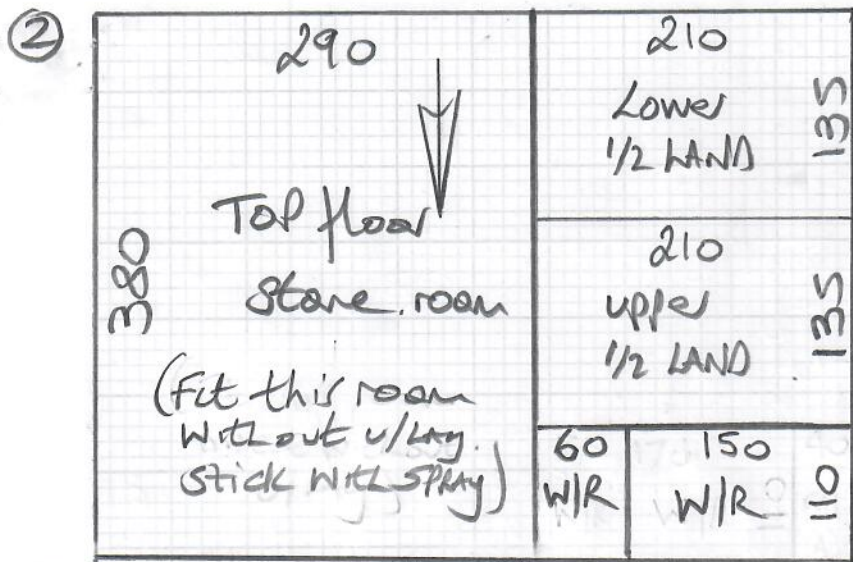 ②
290
TOP floor
Store room
380
(Fit this room
without u/Lay.
Stick with SPRAY)
210
Lower
1/2 LAND
135
210
upper
1/2 LAND
135
60
W/R
150
W/R
110